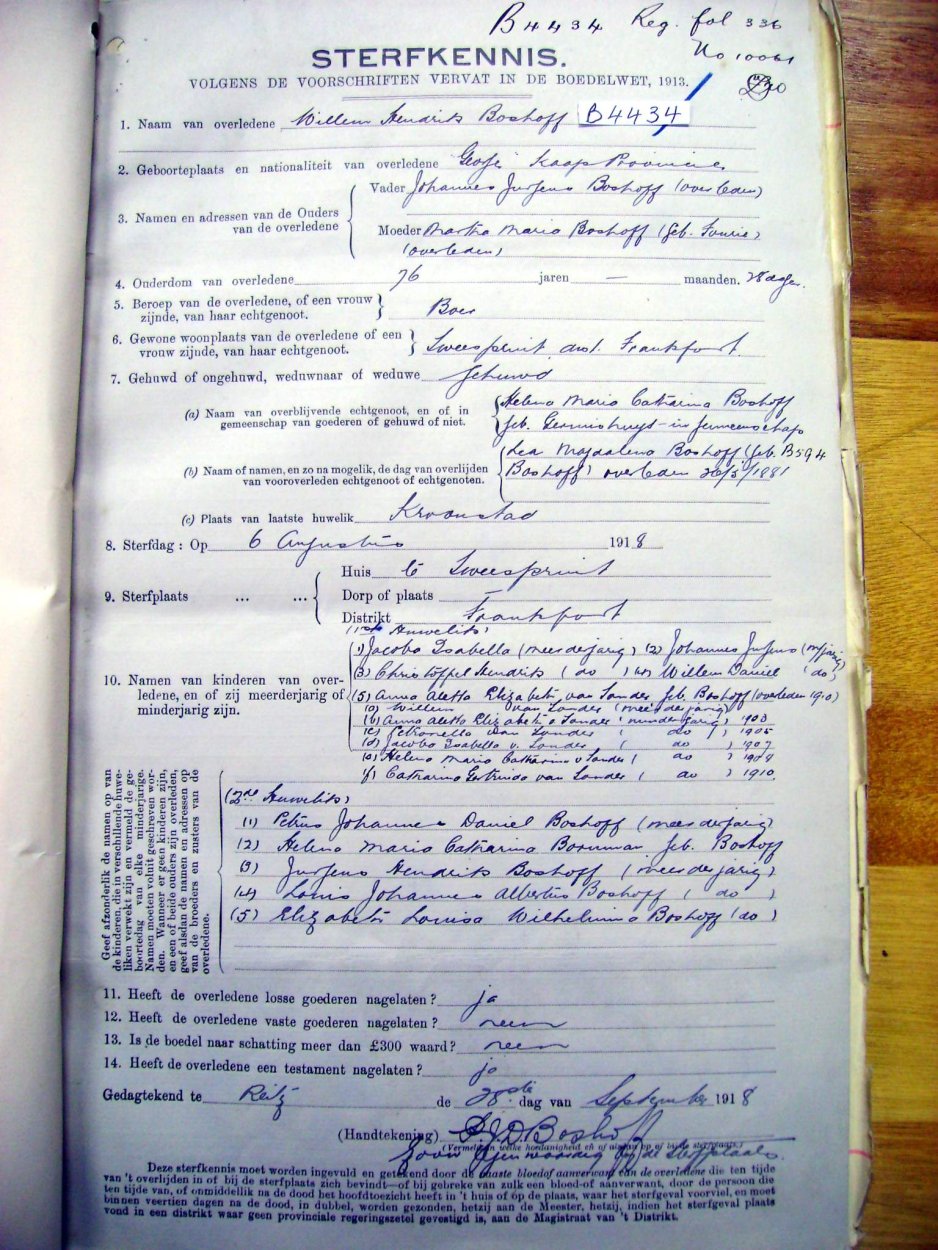 B4434 Reg. fol 336
No 10061
STERFKENNIS.
VOLGENS DE VOORSCHRIFTEN VERVAT IN DE BOEDELWET, 1913.
1. Naam van overledene Willem Hendrik Boshoff B4434
2. Geboorteplaats en nationaliteit van overledene Kaap Provincie
3. Namen en adressen van de Ouders van de overledene
Vader Johannes Jurgens Boshoff (overleden)
Moeder Martha Maria Boshoff (geb. Fourie)
(overleden)
4. Ouderdom van overledene 76 jaren — maanden. 28 dagen.
5. Beroep van de overledene, of een vrouw zijnde, van haar echtgenoot. Boer
6. Gewone woonplaats van de overledene of een vrouw zijnde, van haar echtgenoot. Tweespruit, dist. Frankfort
7. Gehuwd of ongehuwd, weduwnaar of weduwe Gehuwd
(a) Naam van overblijvende echtgenoot, en of in gemeenschap van goederen of gehuwd of niet.
Helena Maria Catharina Boshoff
geb. Terminhuys - in gemeenschap
(b) Naam of namen, en zo na mogelik, de dag van overlijden van vooroverleden echtgenoot of echtgenoten.
Lea Magdalena Boshoff (geb. B594
Boshoff) overleden 26/5/1881
(c) Plaats van laatste huwelik Kroonstad
8. Sterfdag: Op 6 Augustus 1918
9. Sterfplaats ... ...
Huis te Tweespruit
Dorp of plaats —
Distrikt Frankfort
10. Namen van kinderen van overledene, en of zij meerderjarig of minderjarig zijn.
(1ste Huwelik)
(1) Jacoba Isabella (meerderjarig) (2) Johannes Jurgens (m/jarig)
(3) Christoffel Hendrik (do) (4) Willem Daniel (do)
(5) Anna Aletta Elizabeth van Tonder geb. Boshoff (overleden 1910)
(a) Willem van Tonder (meerderjarig)
(b) Anna Aletta Elizabeth v Tonder (minderjarig) 1903
(c) Petronella van Tonder (do) 1905
(d) Jacoba Isabella v. Tonder (do) 1907
(e) Helena Maria Catharina v Tonder (do) 1908
(f) Catharina Gertruida van Tonder (do) 1910.
Geef afzonderlik de namen op van de kinderen, die in verschillende huweliken verwekt zijn en vermeld de geboortedag van elke minderjarige. Namen moeten voluit geschreven worden. Wanneer er geen kinderen zijn, en een of beide ouders zijn overleden, geef alsdan de namen en adressen op van de broeders en zusters van de overledene.
(2de Huwelik)
(1) Petrus Johannes Daniel Boshoff (meerderjarig)
(2) Helena Maria Catharina Bornman geb. Boshoff
(3) Jurgens Hendrik Boshoff (meerderjarig)
(4) Louis Johannes Albertus Boshoff (do)
(5) Elizabeth Louisa Wilhelmina Boshoff (do)
11. Heeft de overledene losse goederen nagelaten? ja
12. Heeft de overledene vaste goederen nagelaten? neen
13. Is de boedel naar schatting meer dan £300 waard? neen
14. Heeft de overledene een testament nagelaten? ja
Gedagtekend te Reitz de 28ste dag van September 1918
(Handtekening) P.J.D. Boshoff
(Vermeld in welke hoedanigheid en of al dan op of bij de sterfplaats.)
Zoon tegenwoordig bij de sterfplaats.
Deze sterfkennis moet worden ingevuld en getekend door de naaste bloed of aanverwant van de overledene die ten tijde
van 't overlijden in of bij de sterfplaats zich bevindt—of bij gebreke van zulk een bloed-of aanverwant, door de persoon die
ten tijde van, of onmiddellik na de dood het hoofdtoezicht heeft in 't huis of op de plaats, waar het sterfgeval voorviel, en moet
binnen veertien dagen na de dood, in dubbel, worden gezonden, hetzij aan de Meester, hetzij, indien het sterfgeval plaats
vond in een distrikt waar geen provinciale regeringszetel gevestigd is, aan de Magistraat van 't Distrikt.